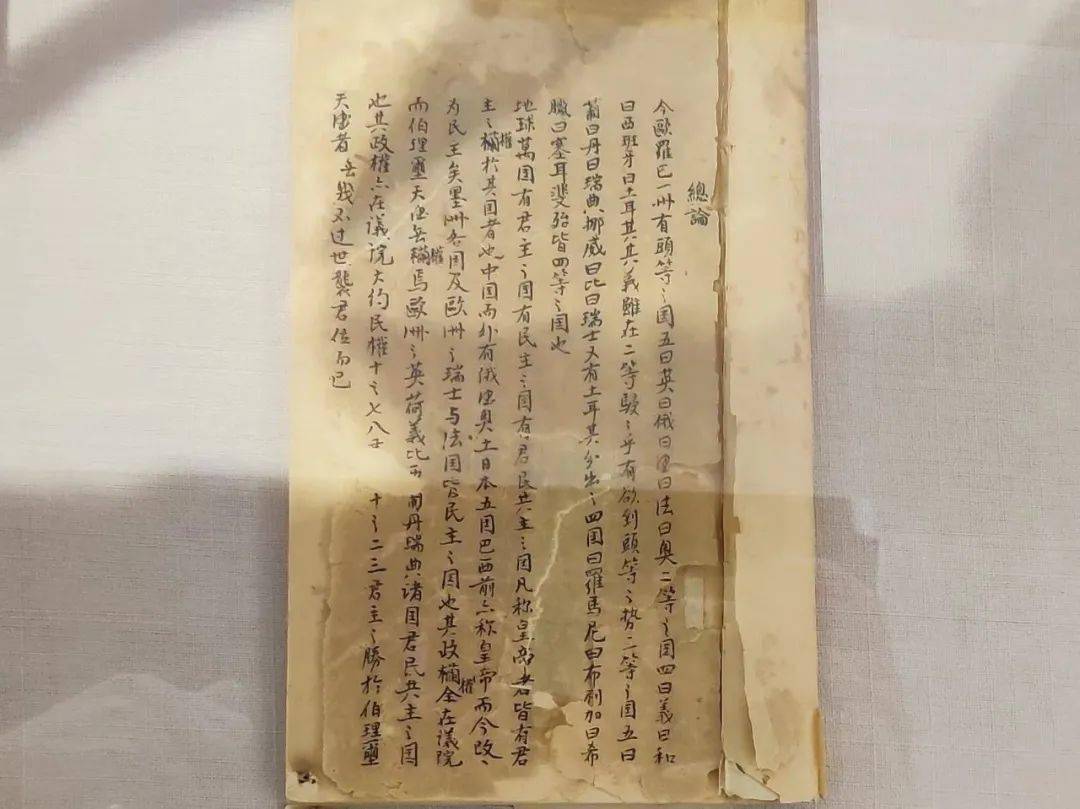 總論
今歐羅巴一州有頭等之国五曰英曰俄曰德曰法曰奥二等之国四曰義曰和
曰西班牙曰土耳其其義雖在二等駸〻乎有欲到頭等之势二等之国五曰
葡曰丹曰瑞典挪威曰比曰瑞士又有土耳其分出之四国曰羅馬尼曰布剌加曰希
臘曰塞耳斐殆皆四等之国也
地球萬国有君主之国有民主之国有君民共主之国凡称皇帝者皆有君
主之權於其国者也中国而外有俄德奥土日本五国巴西前亦称皇帝而今改
为民主矣墨洲各国及歐洲之瑞士与法国皆民主之国也其政權全在議院
而伯理璽天德无權焉歐洲之英荷義比西葡丹瑞典諸国君民共主之国
也其政權亦在議院大约民權十之七八 十之二三君主之勝於伯理璽
天德者无幾不过世襲君位而已